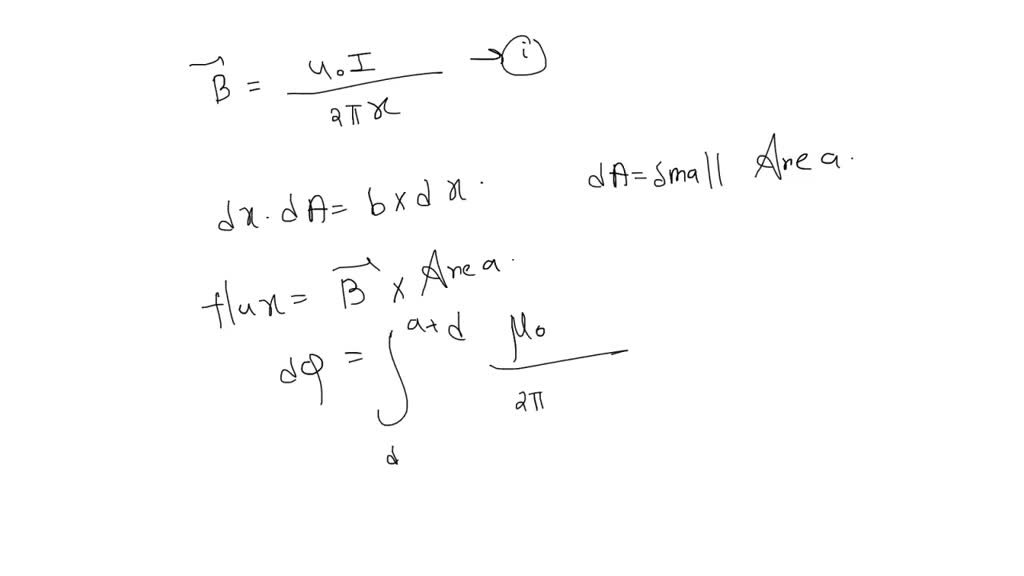 B⃗ = u₀I / 2πx → (i)
dx. dA = b x dx. dA = small Area.
flux = B⃗ x Area.
dφ = ∫_d^{a+d} μ₀ / 2π